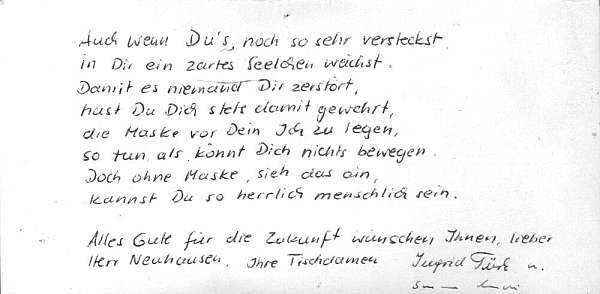 Auch wenn Du's, noch so sehr versteckst
in Dir ein zartes Seelchen weichst.
Damit es niemand Dir zerstört,
hast Du Dich stets damit gewehrt,
die Maske vor Dein Ich zu legen,
so tun, als könnt Dich nichts bewegen.
Doch ohne Maske, sieh das ein,
kannst Du so herrlich menschlich sein.
Alles Gute für die Zukunft wünschen Ihnen, lieber
Herr Neuhausen, Ihre Tischdamen Ingrid Türk u.